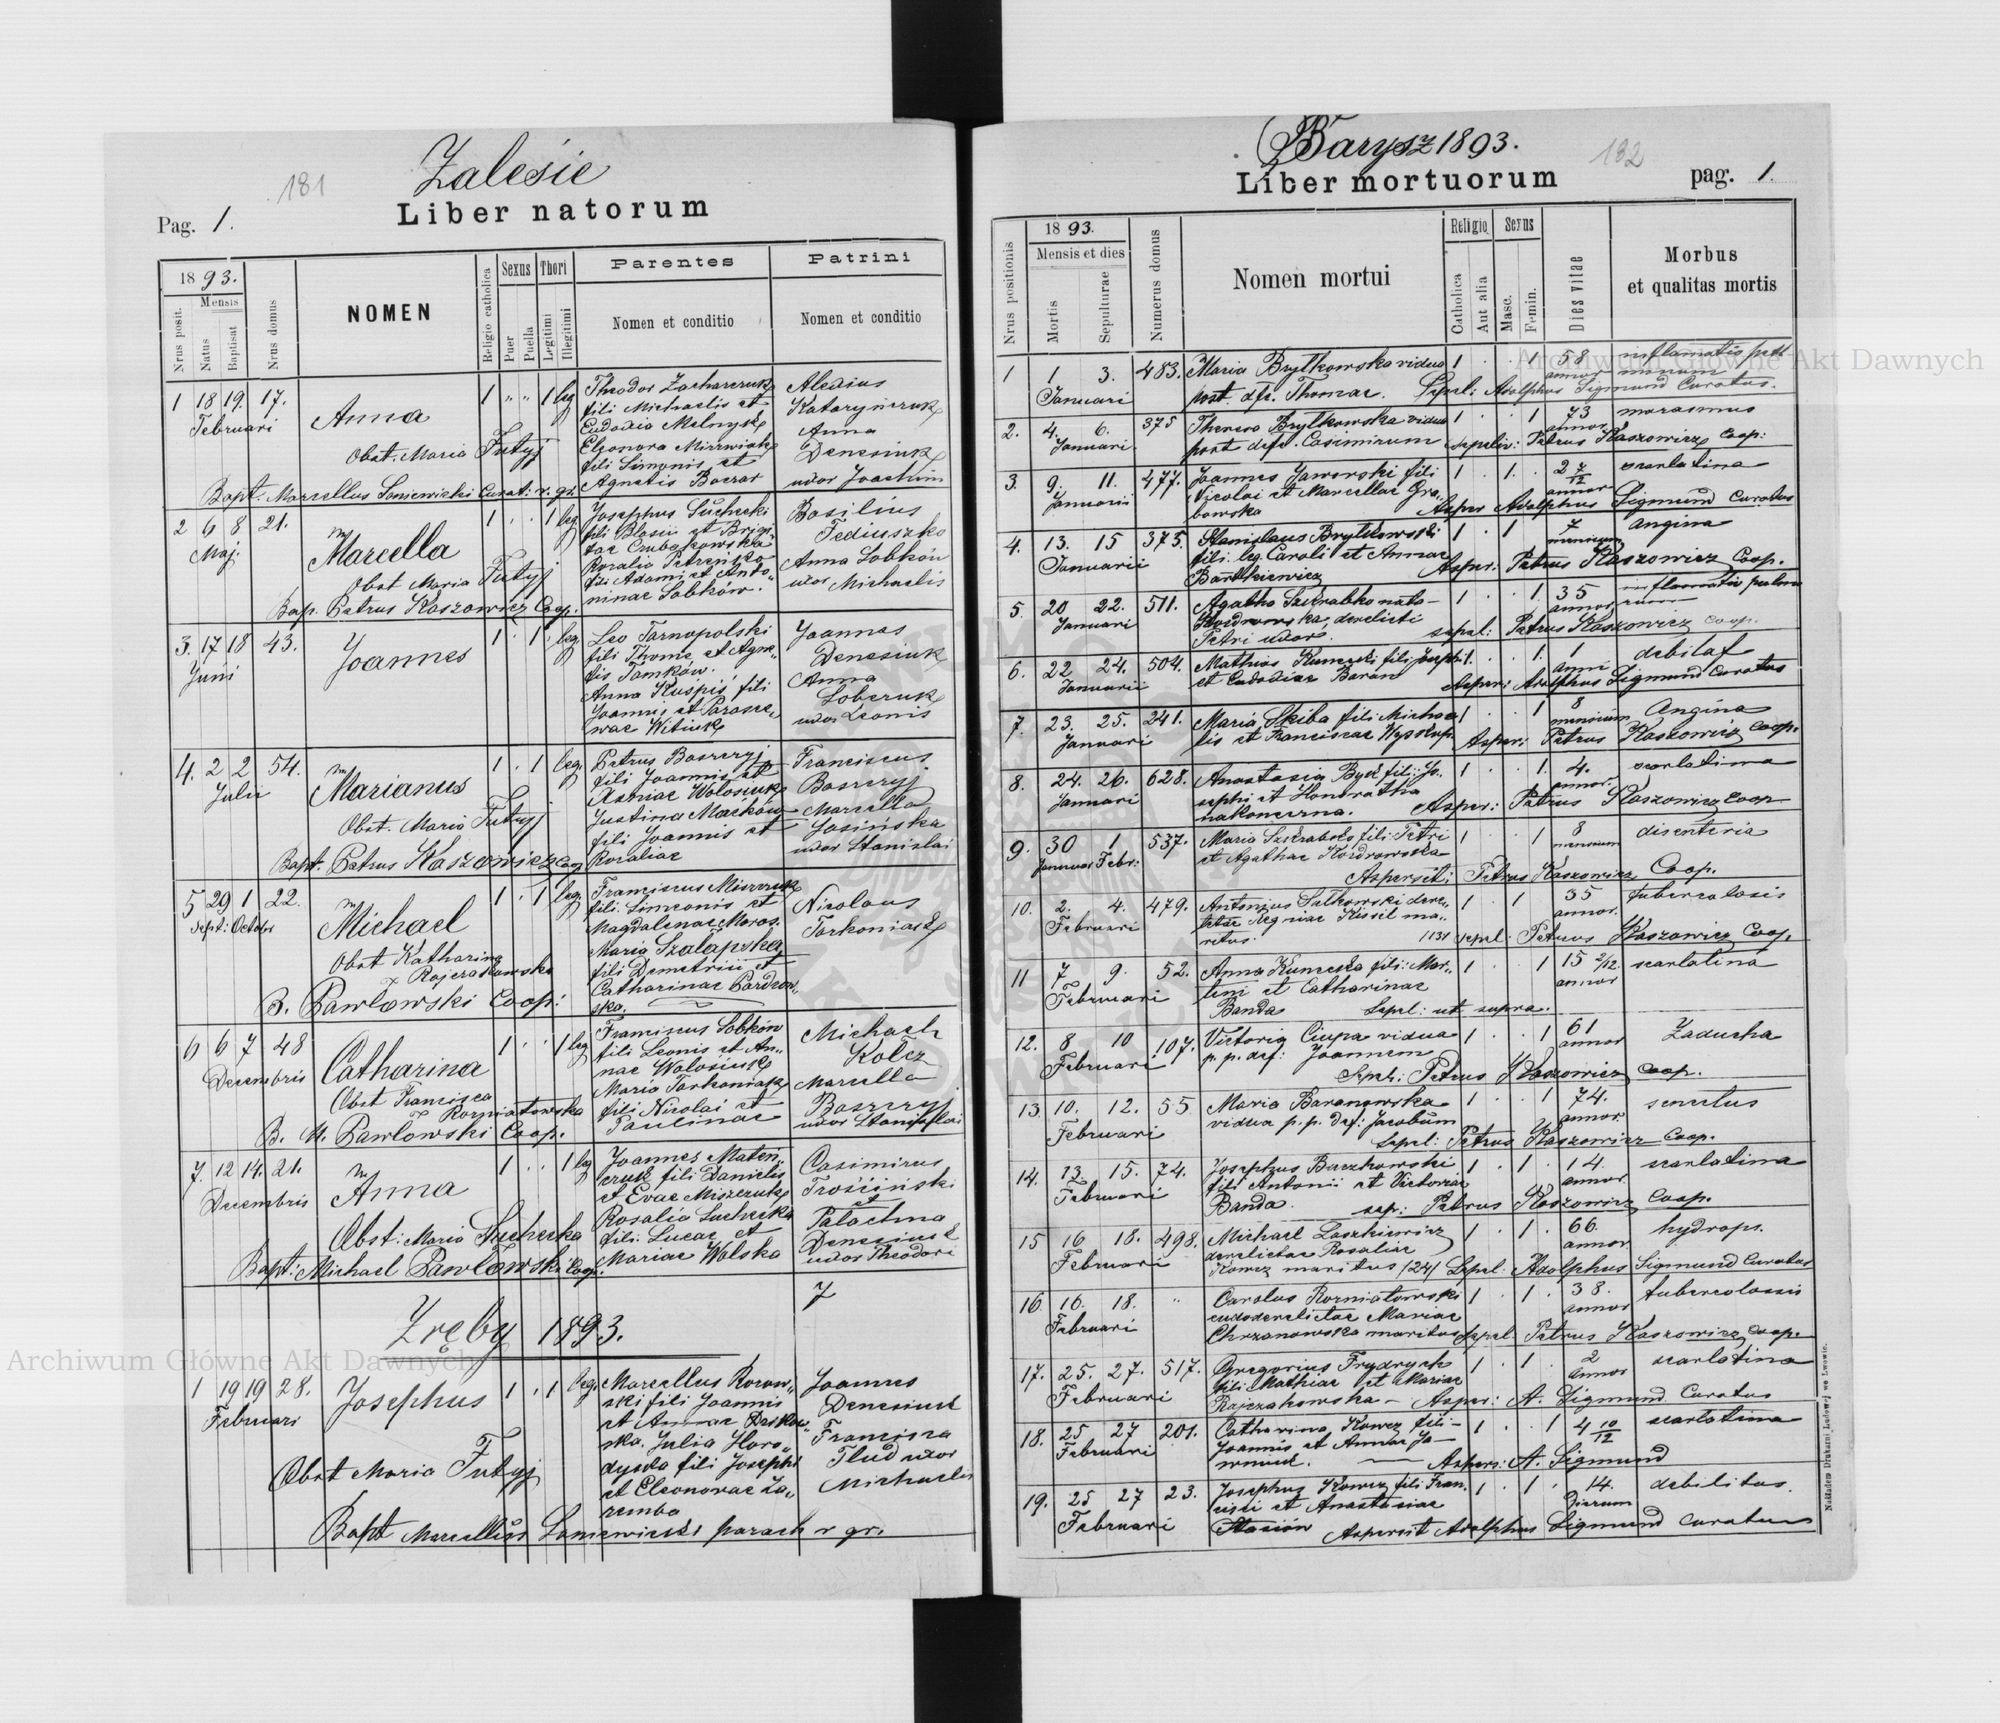 181
Zalesie
Pag. 1.
Liber natorum
1893.
Mensis
Nrus posit.
Natus
Baptisat
Nrus domus
NOMEN
Religio catholica
Sexus
Puer
Puella
Thori
Legitimi
Illegitimi
Parentes
Nomen et conditio
Patrini
Nomen et conditio
1 18 19. 17. Anna 1 " " 1 leg
Februari
Obst. Maria Futyj
Theodor Zacharczuk
fili Michaelis et
Eudoxia Melnyk
Eleonora
fili Simonis et
Agnetis Boczar
Alexius
Katarynczuk
Anna
Denesiuk
uxor Joachim
Bapt. Marcellus Soniewicki Curat: r. gr.
2 6 8 21. Marcella 1 . . 1 leg
Maj.
Obst Maria Futyj
Josephus Suchecki
fili Blasii et Brigi-
tae
Rosalia Petreńsko
fili Adami et Anto-
ninae Sobków.
Basilius
Fediuszko
Anna Sobków
uxor Michaelis
Bap. Petrus Kaszowicz Coop.
3. 17 18 43. Joannes 1 . 1 . leg
Juni
Leo Tarnopolski
fili Thome et Agne-
tis Tomków.
Anna Kuspiś fili
Joannis et Parasce-
wae Witiuk
Joannes
Denesiuk
Anna
Soberuk
uxor Leonis
4. 2 2 54. Marianus 1 . 1 leg.
Julii
Obst. Maria Futyj
Petrus Boszczyj
fili Joannis et
Xeniae Wolosiuk
Justina Maćków
fili Joannis et
Rosaliae
Franciscus
Boszczyj
Marcella
Jasińska
uxor Stanislai
Bapt. Petrus Kaszowicz Coop
5 29 1 22. Michael 1 . 1 leg.
Sept: Octobr
Obst Katharina
Rajczakowska
Franciscus Miszczuk
fili Simeonis et
Magdalenae Moros.
Maria Szalapska
fili Demetrii et
Catharinae Bardzow-
ska.
Nicolaus
Torkoniak
B. Pawłowski Coop:
6 6 7 48 Catharina 1 . . 1 leg
Decembris
Obst Francisca
Rozniatowska
Franciscus Sobków
fili Leonis et An-
nae Wolosiuk
Maria Torkoniak
fili Nicolai et
Paulinae
Michael
Kolcz
Marcella
Boszczyj
uxor Stanislai
B. M. Pawłowski Coop.
7. 12 14. 21. Anna 1 . . 1 leg
Decembris
Obst: Maria Suchecka
Joannes Mateń-
czuk fili Danielis
et Evae Miszczuk
Rosalia Suchecka
fili: Lucae et
Mariae Wolska
Casimirus
Trościński
et
Palachna
Denesiuk
uxor Theodori
Bapt: Michael Pawłowski Coop.
7
Zręby 1893.
1 19 19 28. Josephus 1 . 1 leg.
Februari
Obst Maria Futyj
Marcellus Rozow-
ski fili Joannis
et Annae Daszkow-
ska. Julia Horo-
dyska fili Josephi
et Eleonorae Za-
remba
Joannes
Denesiuk
Francisca
Tlud uxor
Michaelis
Bapt Marcellus Soniewicki paroch r. gr.
Barysz 1893.
182
Liber mortuorum
pag. 1.
Nrus positionis
1893.
Mensis et dies
Mortis
Sepulturae
Numerus domus
Nomen mortui
Religio
Catholica
Aut alia
Sexus
Masc.
Femin.
Dies vitae
Morbus
et qualitas mortis
1 1 3. 483. Maria Brytkowska vidua 1 . . 1 58 inflamatio pul-
Januari post. df. Thomae. Sepel: Adolphus Sigmund Curatus. annor monum
2. 4. 6. 375 Theresa Brytkowska vidua 1 . . 1 73 marasmus
Januari post def. Casimirum sepeliv: Petrus Kaszowicz Coop: annor
3. 9. 11. 477. Joannes Jaworski fili 1 . 1. 2 7/12 scarlatina
Januarii Nicolai et Marcellae Gra- annor
bowska Asper Adolphus Sigmund Curatus
4. 13. 15 375. Stanislaus Brytkowski 1 . 1 7 angina
Januarii fili leg. Caroli et Annae mensium
Bartkiewicz Asper: Petrus Kaszowicz Coop.
5. 20 22. 511. Agatha Szkrabko nata- 1 . . 1. 35 inflamatio pulmo
Januari Kozdrowska, derelicti annor num
Petri uxor. sepel: Petrus Kaszowicz Coop.
6. 22 24. 504. Mathias Kunecki fili Josephi 1. . 1. 1 debilaf
Januarii et Eudoxiae Baran anni
Asper: Adolphus Sigmund Curatus
7. 23. 25. 241. Maria Skiba fili Michae 1 . . 1 8 Angina
Januari lis et Franciscae Wyostup mensium
Asper: Petrus Kaszowicz Coop.
8. 24. 26. 628. Anastasia Byck fili: Jo- 1 . . 1. 4. scarlatina
Januari sephi et Honoratha annor.
nakoneczna. Asper: Petrus Kaszowicz Coop
9. 30 1 537. Maria Szkrabko fili: Petri 1 . . 1 8 disenteria
Januar Febr: et Agathae Kozdrowska mensium
Aspersit: Petrus Kaszowicz Coop.
10. 2. 4. 479. Antonius Salkowski dere- 1 . 1 35 tuberculosis
Februari lictae Agniae Kissil ma- annor.
ritus. sepel: Petrus Kaszowicz Coop.
11 7 9. 52. Anna Kunecka fili: Mar- 1 . . 1 15 2/12. scarlatina
Februari tini et Catharinae annor
Banda Sepel: ut supra.
12. 8 10 107. Victoria Ciupa vidua 1 . . 1 61 Zaducha
Februari p. p. def: Joannem annor
Sepel: Petrus Kaszowicz Coop.
13. 10. 12. 55 Maria Baranowska 1 . . 1 74. senectus
Februari vidua p. p. Def: Jacobum annor
Sepel: Petrus Kaszowicz Coop.
14. 13 15. 74. Josephus Baczkowski 1 . 1 . 14. scarlatina
Februari fili Antonii et Victoriae annor.
Banda. sep: Petrus Kaszowicz Coop.
15 16 18. 498. Michael Laszkiewicz 1 . 1 . 66. hydrops.
Februari derelictae Rosaliae annor
Kowcz maritus /24/ Sepel: Adolphus Sigmund Curatus
16. 16. 18. " Carolus Rozniatowski 1 . 1 . 38. tuberculosis
Februari derelictae Mariae annor
Chrzanowska maritus Sepel: Petrus Kaszowicz Coop.
17. 25. 27. 517. Gregorius Frydrych 1 . 1 . 2 scarlatina
Februari fili Mathiae et Mariae annor
Rajczakowska - Asper: A. Sigmund Curatus
18. 25 27 201. Catharina Kowcz fili- 1 . . 1 4 10/12 scarlatina
Februari Joannis et Annae Ja-
Aspers: A. Sigmund
19. 25 27 23. Josephus Kowcz fili Fran- 1 . 1 . 14. debilitas.
Februari cisci et Anastasiae Dierum
Stasiów Aspersit Adolphus Sigmund Curatus
Nakładem Drukarni Ludowej we Lwowie.
Archiwum Główne Akt Dawnych
Archiwum Główne Akt Dawnych